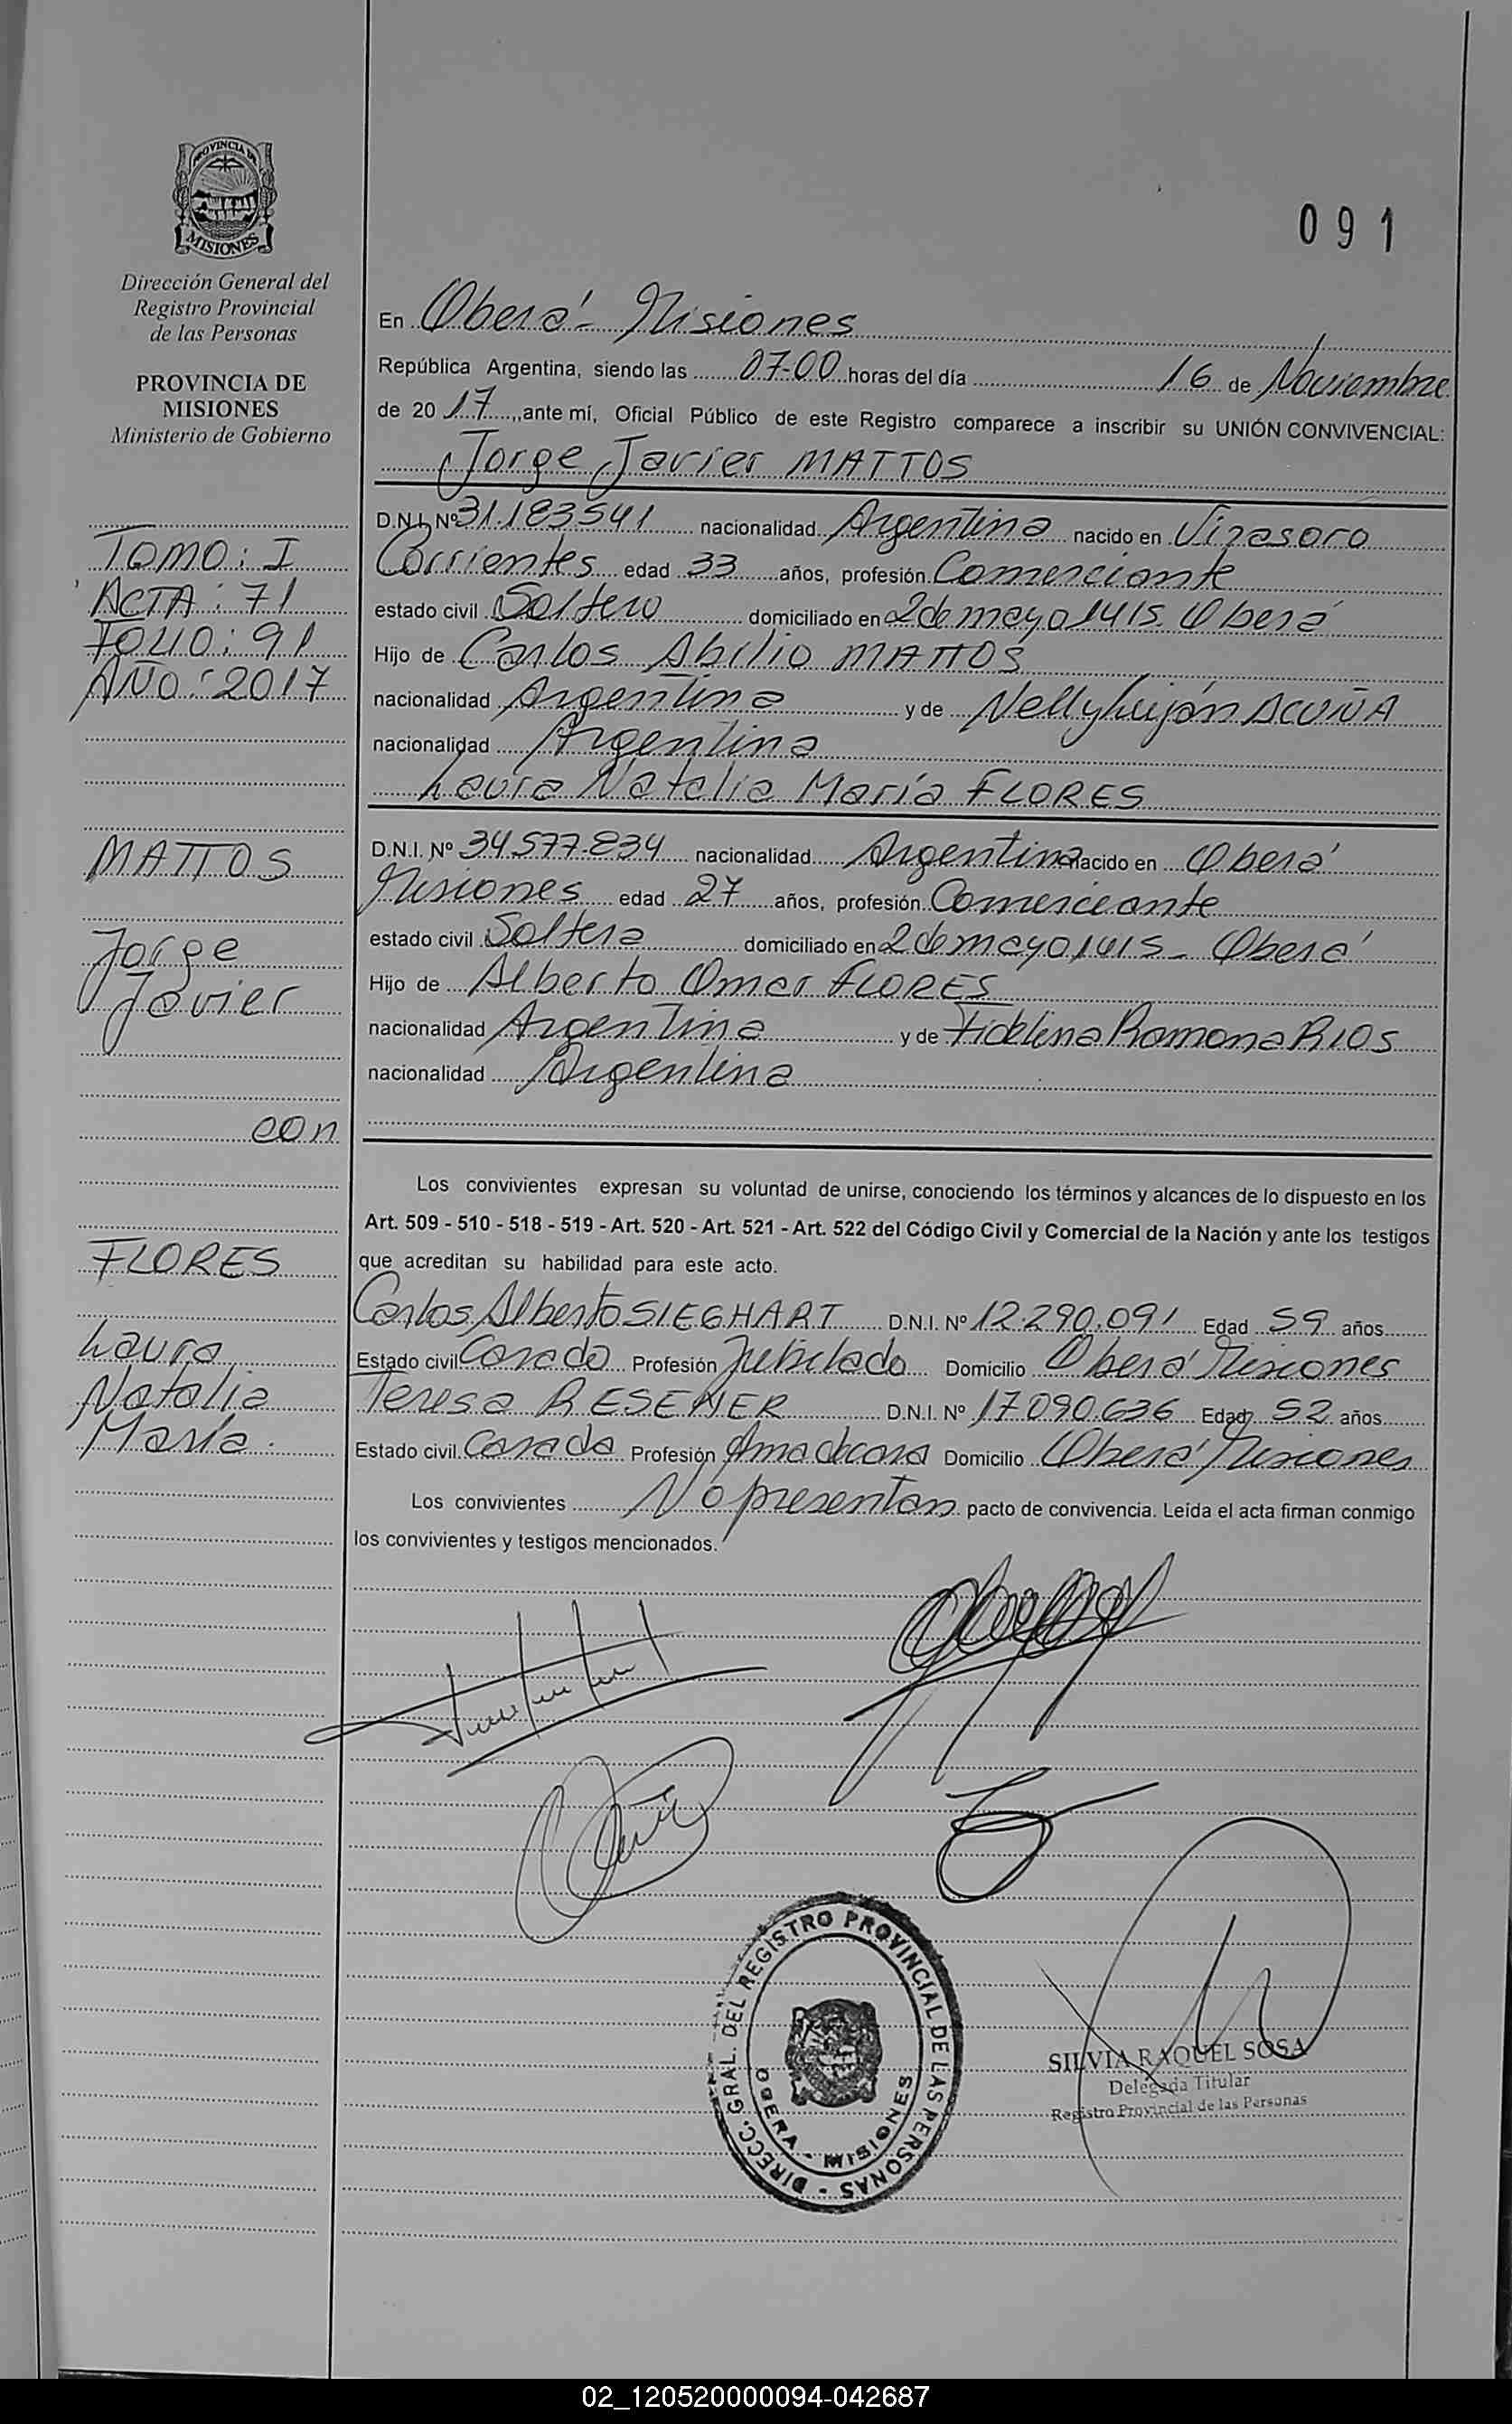 PROVINCIA DE
MISIONES
Dirección General del
Registro Provincial
de las Personas
PROVINCIA DE
MISIONES
Ministerio de Gobierno
TOMO: I
ACTA: 71
FOLIO: 91
AÑO: 2017
MATTOS
Jorge
Javier
con
FLORES
Laura
Natalia
María.
091
En Oberá - Misiones
República Argentina, siendo las 07-00 horas del día 16 de Noviembre
de 20 17, ante mí, Oficial Público de este Registro comparece a inscribir su UNIÓN CONVIVENCIAL:
Jorge Javier MATTOS
D.N.I. Nº 31.183541 nacionalidad Argentina nacido en Virasoro
Corrientes edad 33 años, profesión Comerciante
estado civil Soltero domiciliado en 2 de mayo 1415 Oberá
Hijo de Carlos Abilio MATTOS
nacionalidad Argentina y de Nelly Luján ACUÑA
nacionalidad Argentina
Laura Natalia María FLORES
D.N.I. Nº 34577.834 nacionalidad Argentina nacido en Oberá
Misiones edad 27 años, profesión Comerciante
estado civil Soltera domiciliado en 2 de mayo 1415 - Oberá
Hijo de Alberto Omar FLORES
nacionalidad Argentina y de Fidelina Ramona RIOS
nacionalidad Argentina
Los convivientes expresan su voluntad de unirse, conociendo los términos y alcances de lo dispuesto en los
Art. 509 - 510 - 518 - 519 - Art. 520 - Art. 521 - Art. 522 del Código Civil y Comercial de la Nación y ante los testigos
que acreditan su habilidad para este acto.
Carlos Alberto SIEGHART D.N.I. Nº 12.290.091 Edad 59 años
Estado civil Casado Profesión Jubilado Domicilio Oberá Misiones
Teresa RESENER D.N.I. Nº 17090.636 Edad 52 años
Estado civil Casada Profesión Ama de casa Domicilio Oberá Misiones
Los convivientes No presentan pacto de convivencia. Leída el acta firman conmigo
los convivientes y testigos mencionados.
DIRECC. GRAL. DEL REGISTRO PROVINCIAL DE LAS PERSONAS -
OBERA - MISIONES
SILVIA RAQUEL SOSA
Delegada Titular
Registro Provincial de las Personas
02_120520000094-042687